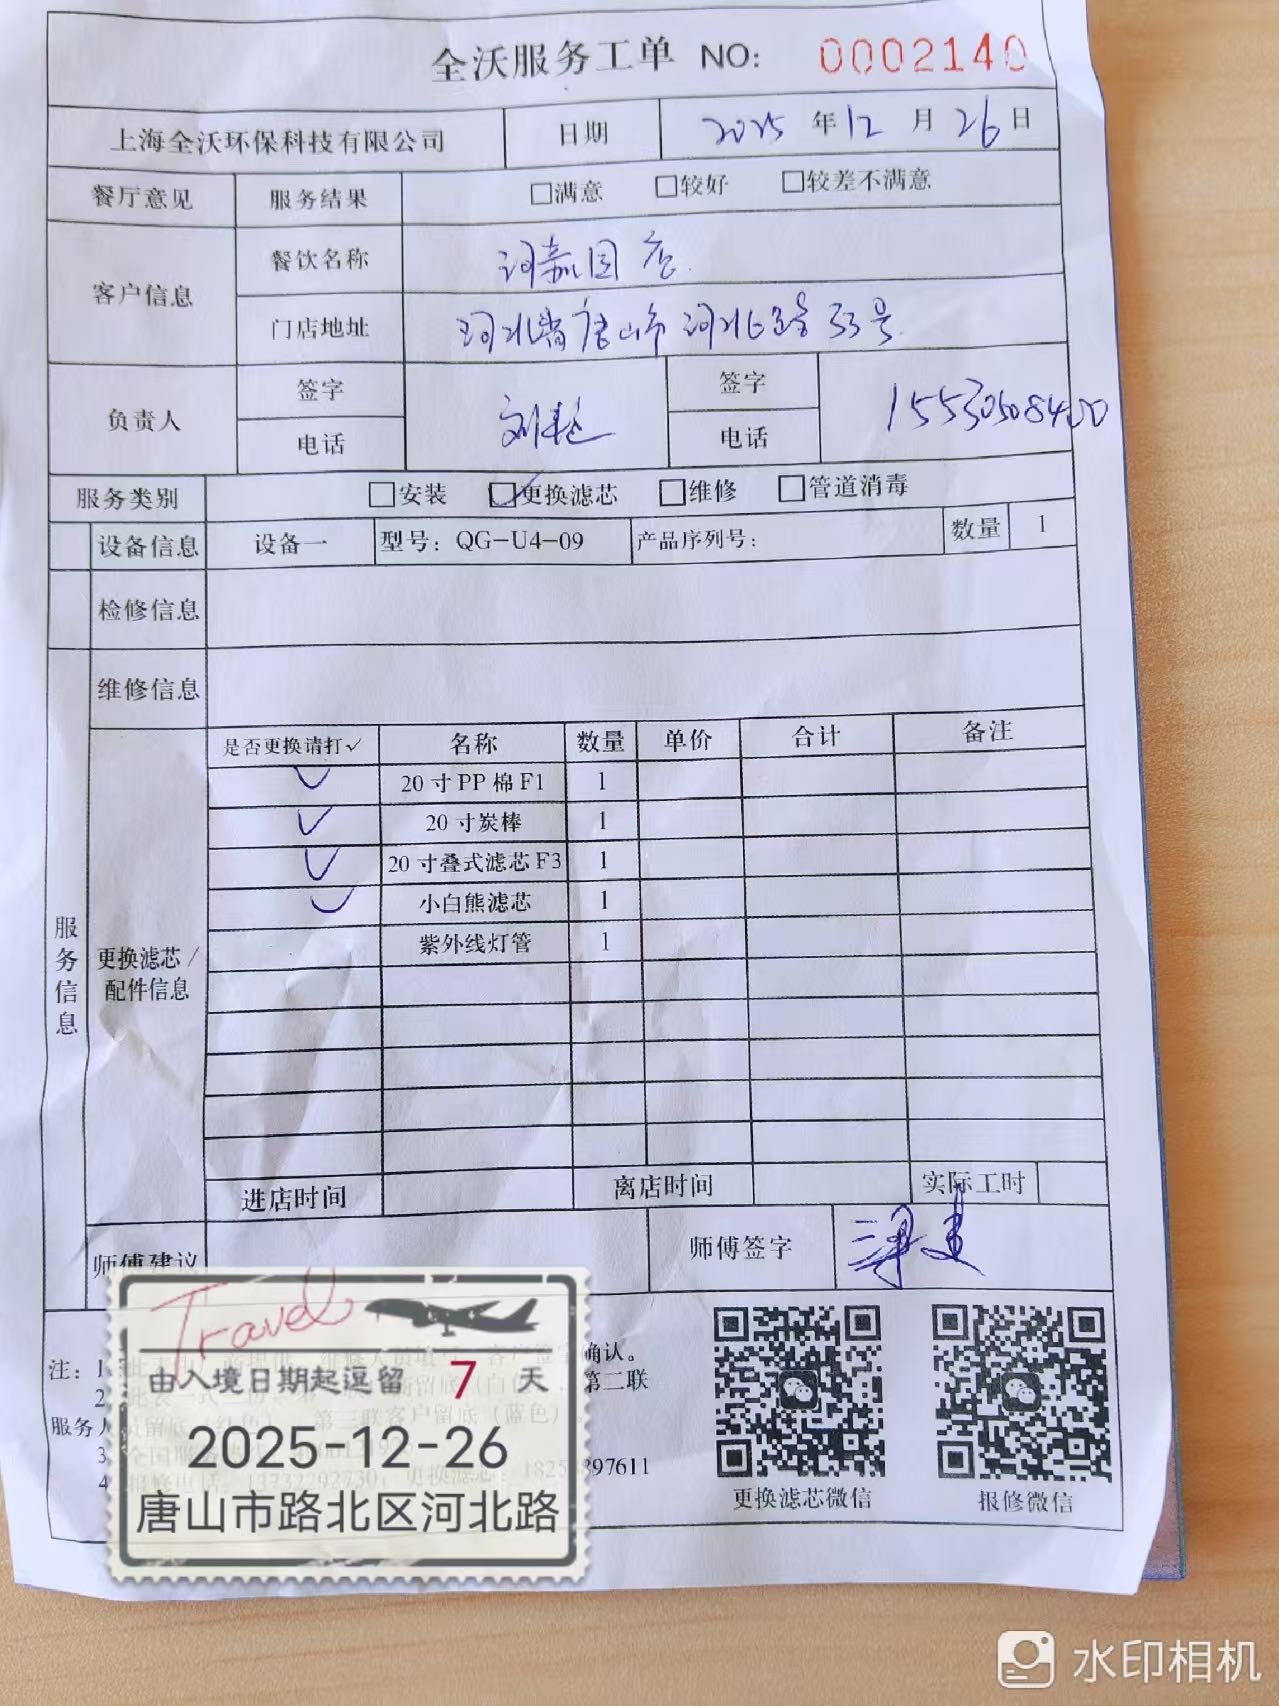 全沃服务工单 NO: 0002140
上海全沃环保科技有限公司 日期 2025 年 12 月 26 日
餐厅意见 服务结果 □满意 □较好 □较差不满意
客户信息 餐饮名称 河嘉园店
门店地址 河北省唐山市河北路53号
负责人 签字 电话 刘 签字 电话 15530508400
服务类别 □安装 ☑更换滤芯 □维修 □管道消毒
设备信息 设备一 型号：QG-U4-09 产品序列号： 数量 1
检修信息
维修信息
服务信息
更换滤芯/
配件信息
是否更换请打✓ 名称 数量 单价 合计 备注
✓ 20寸PP棉F1 1
✓ 20寸炭棒 1
✓ 20寸叠式滤芯F3 1
✓ 小白熊滤芯 1
紫外线灯管 1
进店时间 离店时间 实际工时
师傅建议 师傅签字 梁
注：1
确认。
2
第二联
服务人员留底（红色），第三联客户留底（蓝色）。
3 全国服务
4 报修电话：13732292730；更换滤芯：1825 97611
更换滤芯微信 报修微信
Travel
由入境日期起逗留 7 天
2025-12-26
唐山市路北区河北路
水印相机